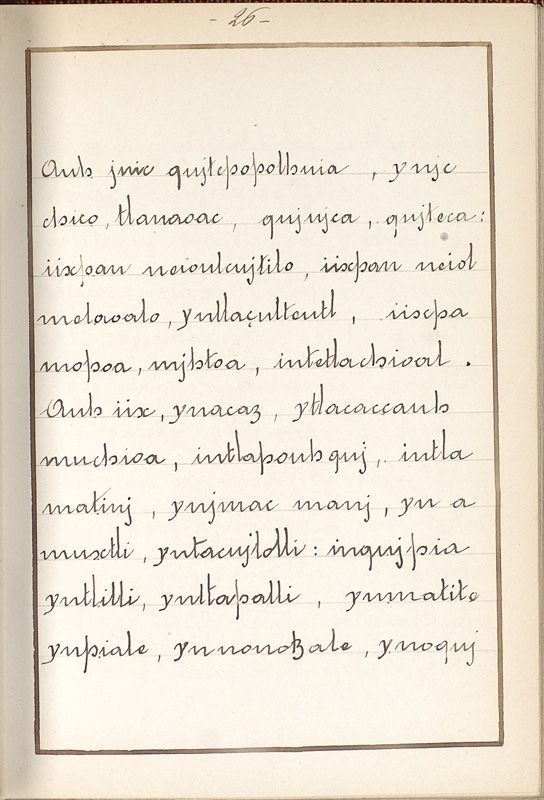 - 26 -
Auh jnic qujtepopolhuia , ynjc
chico, tlanaoac , qujujca , qujteca :
iixpan neioulcujtilo , iixpan neiol
melaoalo, yntlaçulteutl , iixpa
mopoa, mjhtoa , intetlachioal .
Auh iix, ynacaz , ytlacaccauh
muchioa , intlapouhquj , intla
matinj , ynjmac manj , yn a
muxtli , yntacujlolli : inqujpia
yntlilli, yntlapalli , ynmatile
ynpiale , ynnonotzale , ynoquj